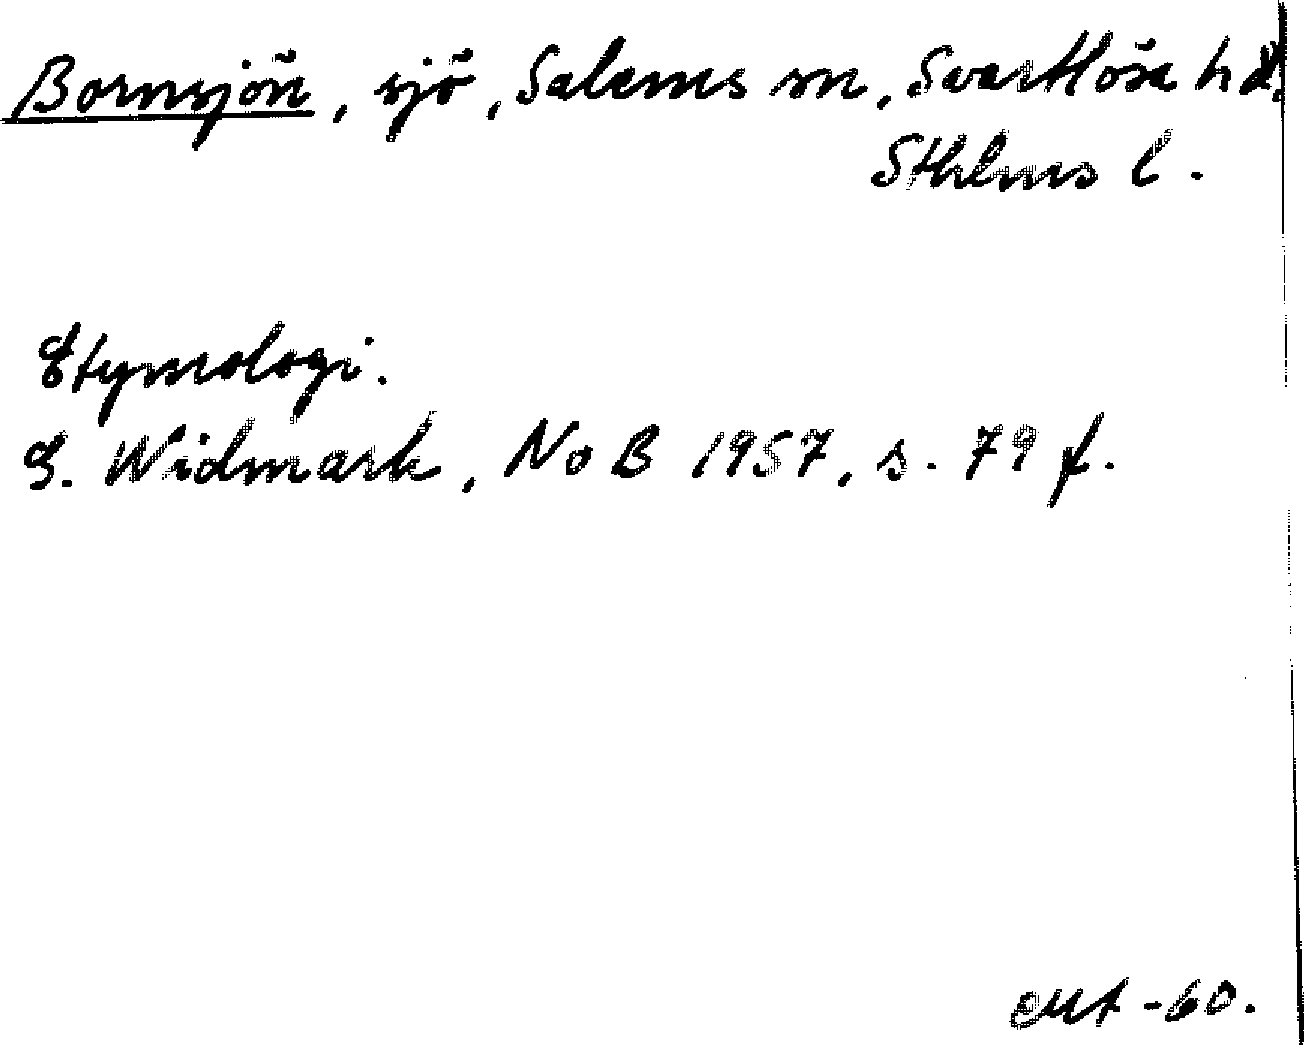 Bornsjön, sjö, Salems sn, Svartlösa hd,
Sthlms l.
Etymologi.
G. Widmark, NoB 1957, s. 79 f.
-60.